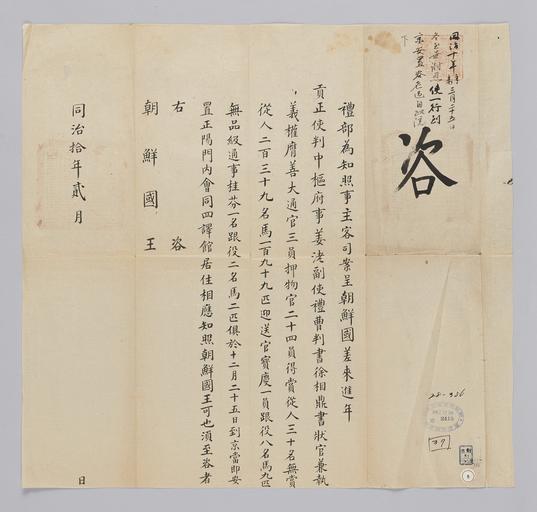 同治十年辛未三月二十五日
使一行到
下
咨
禮部為知照事主客司案呈朝鮮國差來進年
貢正使判中樞府事姜㳣副使禮曹判書徐相鼎書狀官兼執
義權膺善大通官三員押物官二十四員得賞從人三十名無賞
從人二百三十九名馬一百九十九匹迎送官寶慶一員跟役八名馬九匹
無品級通事桂芬一名跟役二名馬二匹俱於十二月二十五日到京當即安
置正陽門內會同四譯館居住相應知照朝鮮國王可也須至咨者
右咨
朝鮮國王
同治拾年貳月 日
2415